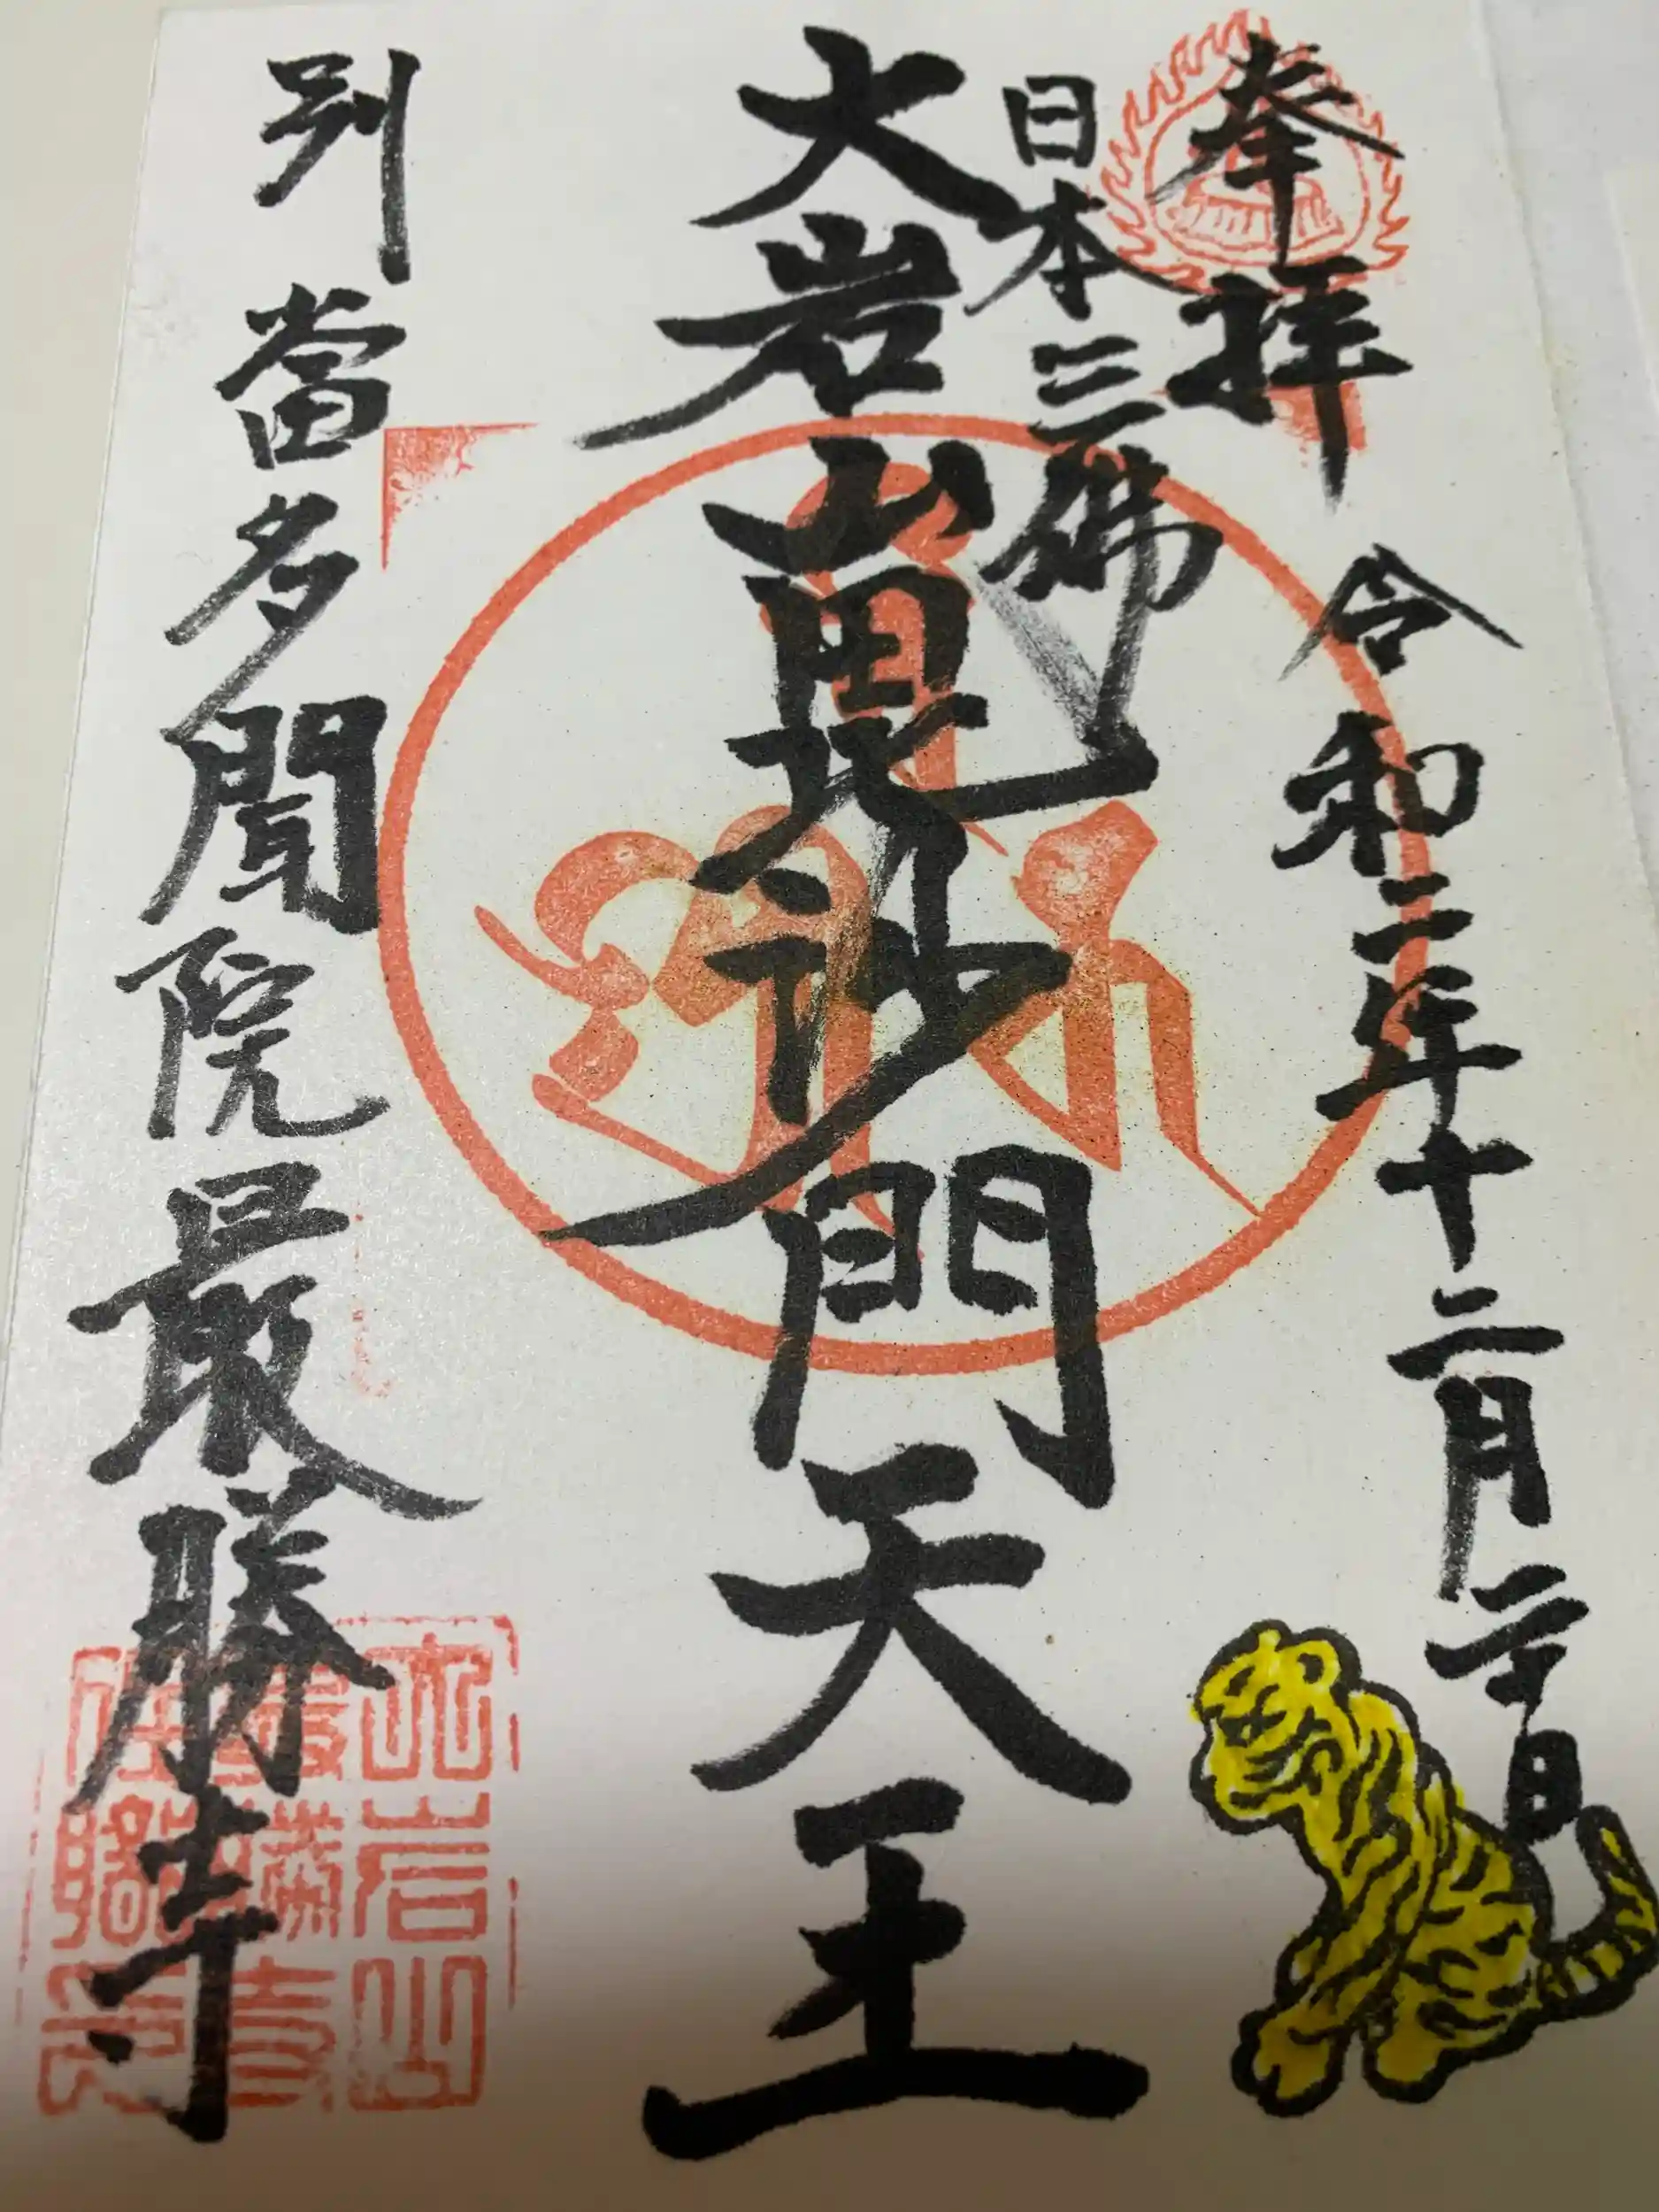 奉拝
令和二年十二月二十日
日本三佛
大岩山毘沙門天王
別當多聞院最勝寺
大岩山
最勝寺
住職之印